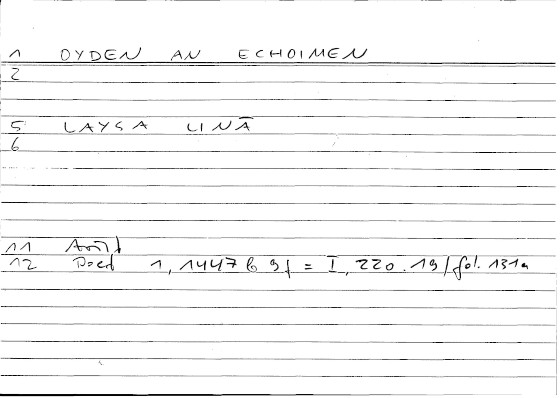 1 OYDEN AN ECHOIMEN
2
5 LAYSA LINĀ
6
11
12 1, 1447 b 9f = I, 220.19/fol. 131a